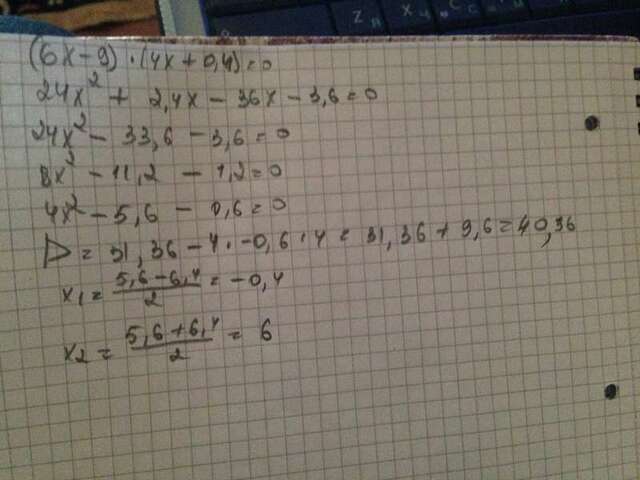 (6x-9)·(4x+0,4)=0
24x² + 2,4x - 36x - 3,6=0
24x² - 33,6 - 3,6=0
8x² - 11,2 - 1,2=0
4x² - 5,6 - 0,6=0
D = 31,36 - 4·-0,6·4 = 31,36 + 9,6 = 40,96
x1 = 5,6-6,4/2 = -0,4
x2 = 5,6+6,4/2 = 6